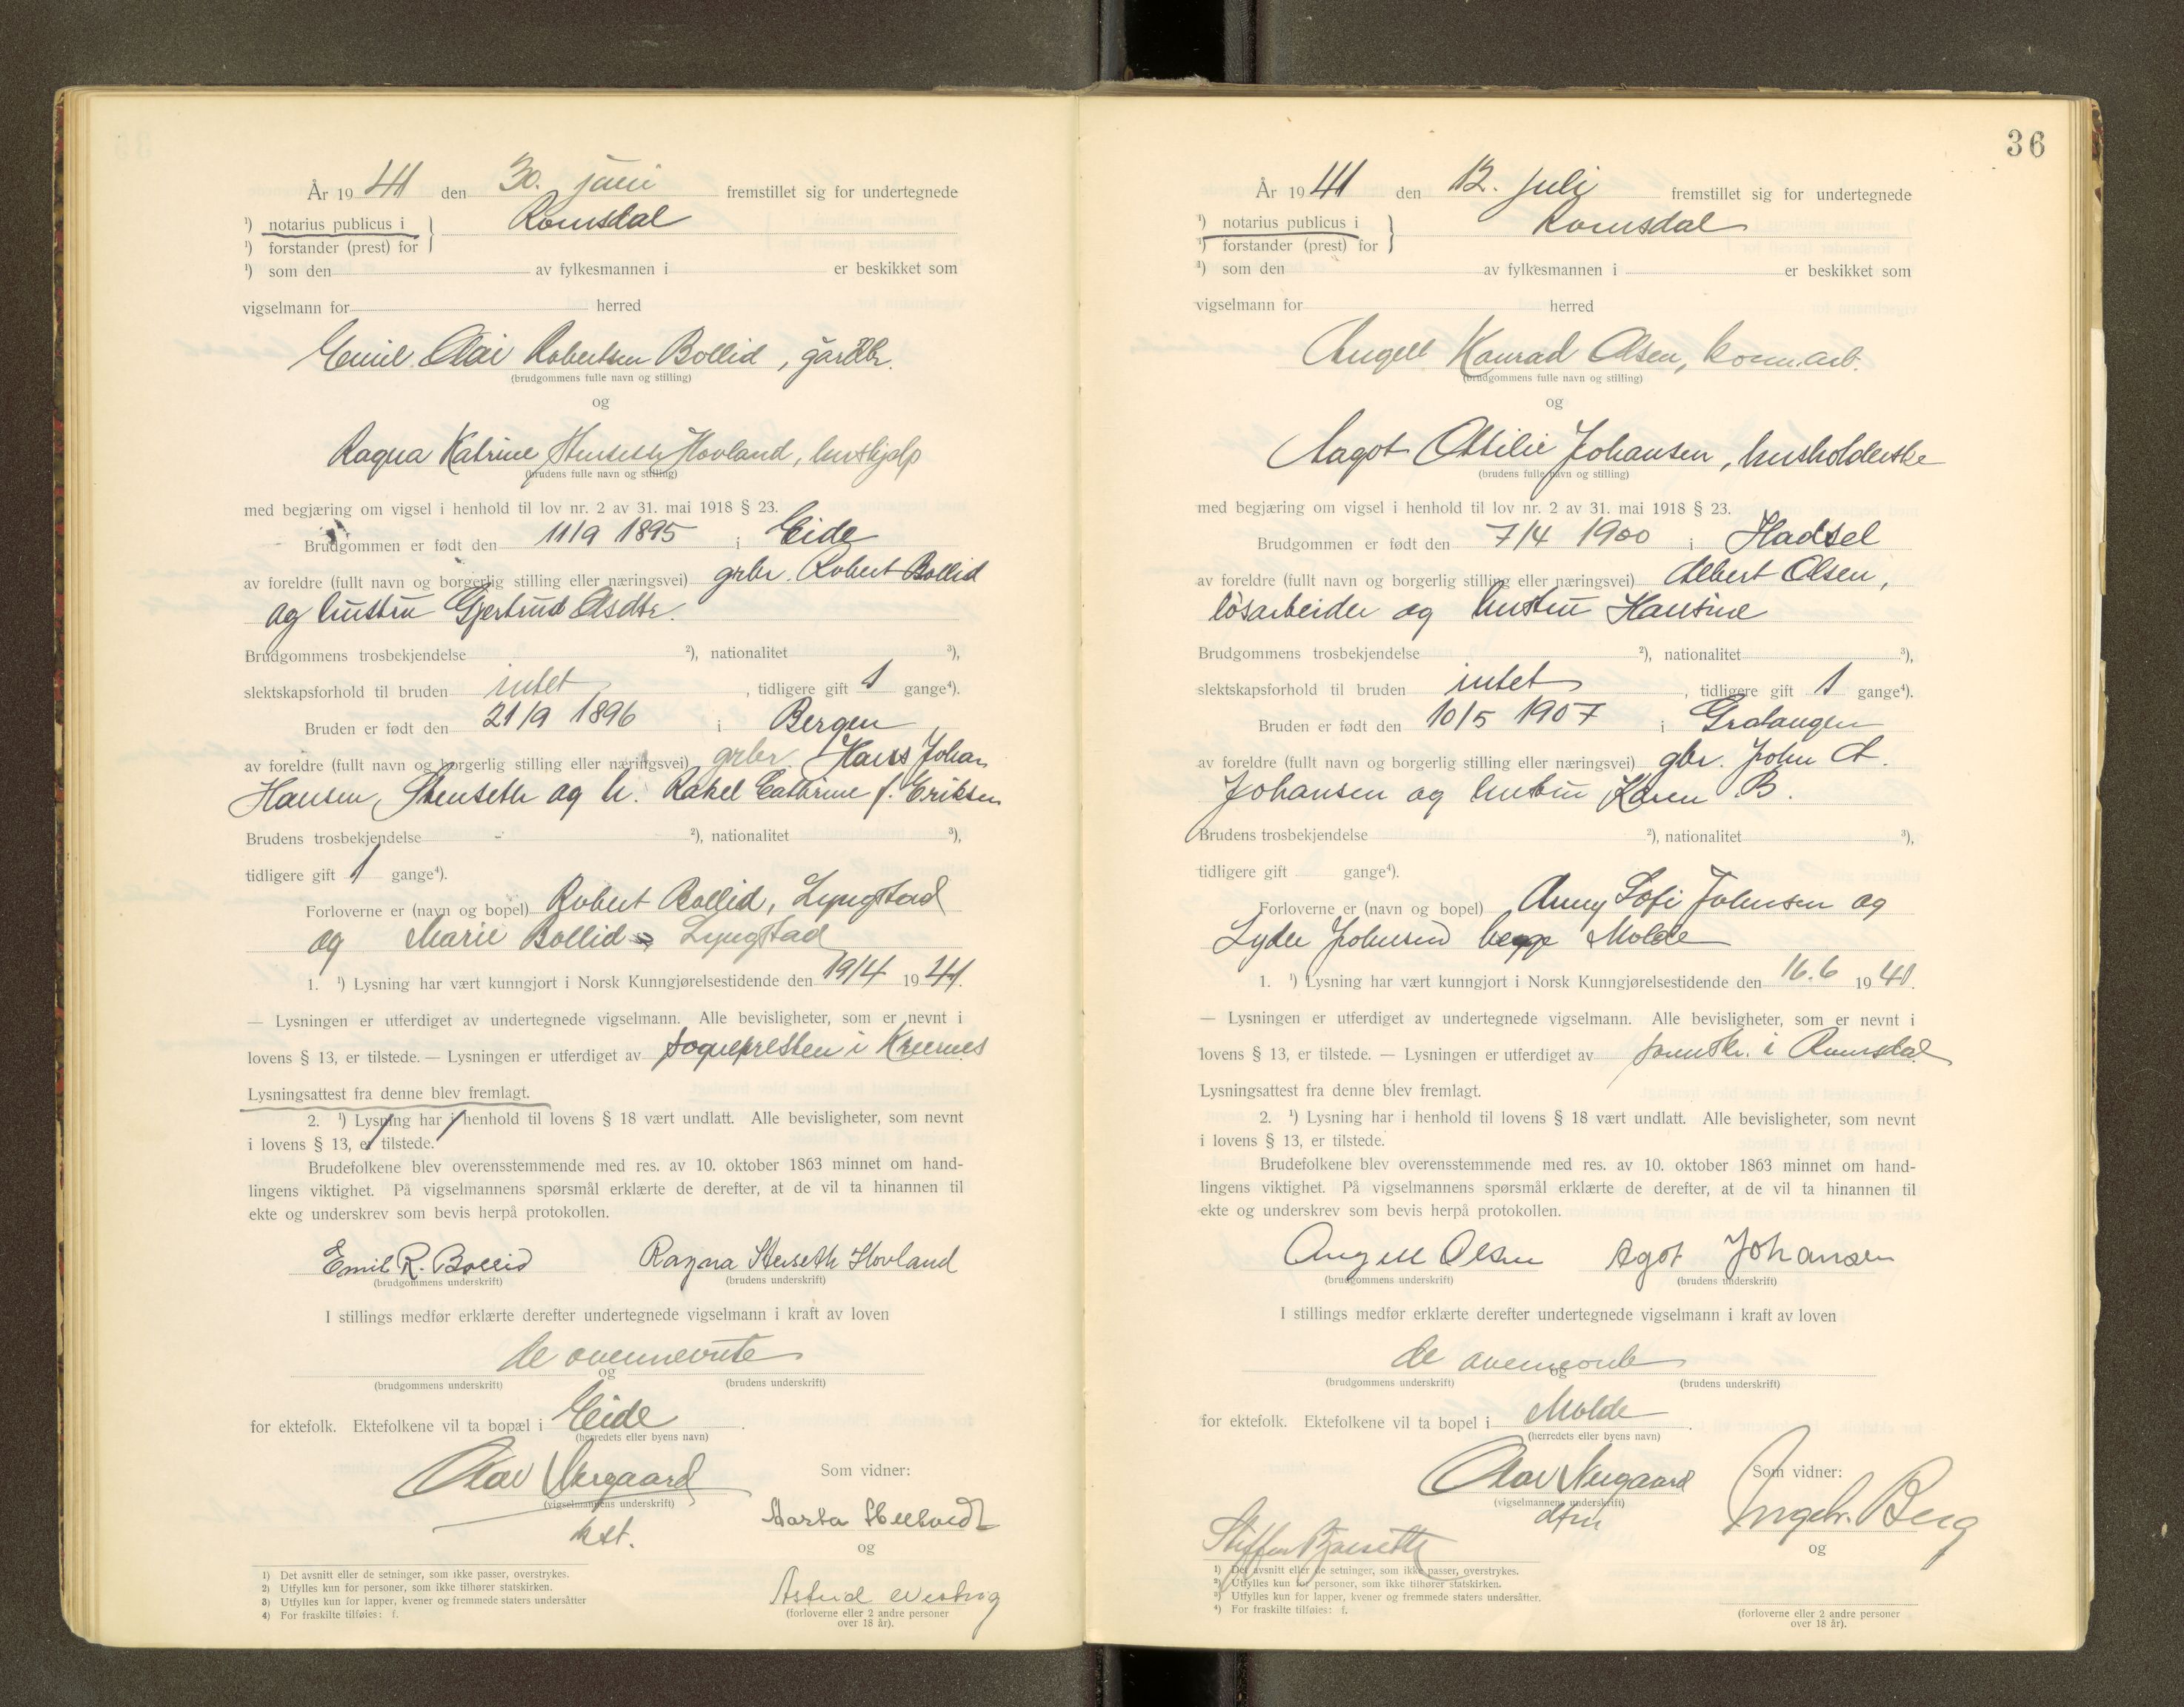 År 19 41 den 30. juni fremstillet sig for undertegnede
¹) notarius publicus i } Romsdal
¹) forstander (prest) for
¹) som den av fylkesmannen i er beskikket som
vigselmann for herred
Emil Olai Robertsen Bollid, gårdbr.
(brudgommens fulle navn og stilling)
og
Ragna Katrine Stenseth Hovland, hushjelp
(brudens fulle navn og stilling)
med begjæring om vigsel i henhold til lov nr. 2 av 31. mai 1918 § 23.
Brudgommen er født den 11/9 1895 i Eide
av foreldre (fullt navn og borgerlig stilling eller næringsvei) grbr. Robert Bollid
og hustru Gjertrud Asdtr.
Brudgommens trosbekjendelse ²), nationalitet ³),
slektskapsforhold til bruden intet, tidligere gift 1 gange⁴).
Bruden er født den 21/9 1896 i Bergen
av foreldre (fullt navn og borgerlig stilling eller næringsvei) grbr. Hans Johan
Hansen Stenseth og h. Rakel Cathrine f. Eriksen
Brudens trosbekjendelse - ²), nationalitet ³),
tidligere gift 1 gange⁴).
Forloverne er (navn og bopel) Robert Bollid, Lyngstad
og Marie Bollid Lyngstad
1. ¹) Lysning har vært kunngjort i Norsk Kunngjørelsestidende den 19/4 19 41.
— Lysningen er utferdiget av undertegnede vigselmann. Alle bevisligheter, som er nevnt i
lovens § 13, er tilstede. — Lysningen er utferdiget av sognepresten i Kvernes
Lysningsattest fra denne blev fremlagt.
2. ¹) Lysning har i henhold til lovens § 18 vært undlatt. Alle bevisligheter, som nevnt
i lovens § 13, er tilstede.
Brudefolkene blev overensstemmende med res. av 10. oktober 1863 minnet om hand-
lingens viktighet. På vigselmannens spørsmål erklærte de derefter, at de vil ta hinannen til
ekte og underskrev som bevis herpå protokollen.
Emil R. Bollid Ragna Stenseth Hovland
(brudgommens underskrift) (brudens underskrift)
I stillings medfør erklærte derefter undertegnede vigselmann i kraft av loven
de ovennevnte
og
(brudgommens underskrift) (brudens underskrift)
for ektefolk. Ektefolkene vil ta bopæl i Eide.
(herredets eller byens navn)
Olav Nergaard Som vidner:
(vigselmannens underskrift)
kst. Marta
og
Astrid
(forloverne eller 2 andre personer
over 18 år).
1) Det avsnitt eller de setninger, som ikke passer, overstrykes.
2) Utfylles kun for personer, som ikke tilhører statskirken.
3) Utfylles kun for lapper, kvener og fremmede staters undersåtter
4) For fraskilte tilføies: f.
36
År 19 41 den 12. juli fremstillet sig for undertegnede
¹) notarius publicus i } Romsdal
¹) forstander (prest) for
¹) som den av fylkesmannen i er beskikket som
vigselmann for herred
Angell Konrad Olsen, komm.arb.
(brudgommens fulle navn og stilling)
og
Aagot Ottilie Johansen, husholderske
(brudens fulle navn og stilling)
med begjæring om vigsel i henhold til lov nr. 2 av 31. mai 1918 § 23.
Brudgommen er født den 7/4 1900 i Hadsel
av foreldre (fullt navn og borgerlig stilling eller næringsvei) Albert Olsen,
løsarbeider og hustru Hansine
Brudgommens trosbekjendelse ²), nationalitet ³),
slektskapsforhold til bruden intet, tidligere gift 1 gange⁴).
Bruden er født den 10/5 1907 i Gratangen
av foreldre (fullt navn og borgerlig stilling eller næringsvei) gbr. John A.
Johansen og hustru Karen B.
Brudens trosbekjendelse ²), nationalitet ³),
tidligere gift gange⁴).
Forloverne er (navn og bopel) Anny Sofi Johnsen og
Lyder Johnsen begge Molde
1. ¹) Lysning har vært kunngjort i Norsk Kunngjørelsestidende den 16.6 19 41.
— Lysningen er utferdiget av undertegnede vigselmann. Alle bevisligheter, som er nevnt i
lovens § 13, er tilstede. — Lysningen er utferdiget av sorenskr. i Romsdal
Lysningsattest fra denne blev fremlagt.
2. ¹) Lysning har i henhold til lovens § 18 vært undlatt. Alle bevisligheter, som nevnt
i lovens § 13, er tilstede.
Brudefolkene blev overensstemmende med res. av 10. oktober 1863 minnet om hand-
lingens viktighet. På vigselmannens spørsmål erklærte de derefter, at de vil ta hinannen til
ekte og underskrev som bevis herpå protokollen.
Angell Olsen Agot Johansen
(brudgommens underskrift) (brudens underskrift)
I stillings medfør erklærte derefter undertegnede vigselmann i kraft av loven
de ovennevnte
og
(brudgommens underskrift) (brudens underskrift)
for ektefolk. Ektefolkene vil ta bopel i Molde.
(herredets eller byens navn)
Olav Nergaard Som vidner:
(vigselmannens underskrift)
dfm Ingebr. Berg
Steffen
og
1) Det avsnitt eller de setninger, som ikke passer, overstrykes.
2) Utfylles kun for personer, som ikke tilhører statskirken.
3) Utfylles kun for lapper, kvener og fremmede staters undersåtter.
4) For fraskilte tilføies: f.
(forloverne eller 2 andre personer
over 18 år).